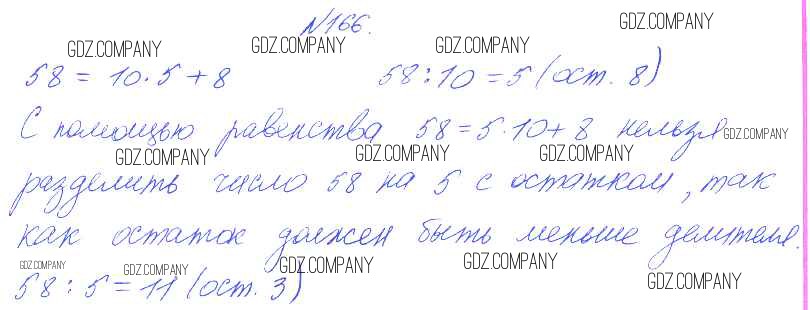 №166.
GDZ.COMPANY GDZ.COMPANY GDZ.COMPANY GDZ.COMPANY
58 = 10·5+8 58:10=5 (ост. 8)
С помощью равенства 58=5·10+8 нельзя GDZ.COMPANY
GDZ.COMPANY GDZ.COMPANY GDZ.COMPANY
разделить число 58 на 5 с остатком, так
как остаток должен быть меньше делителя.
GDZ.COMPANY GDZ.COMPANY GDZ.COMPANY GDZ.COMPANY GDZ.COMPANY
58 : 5 = 11 (ост. 3)